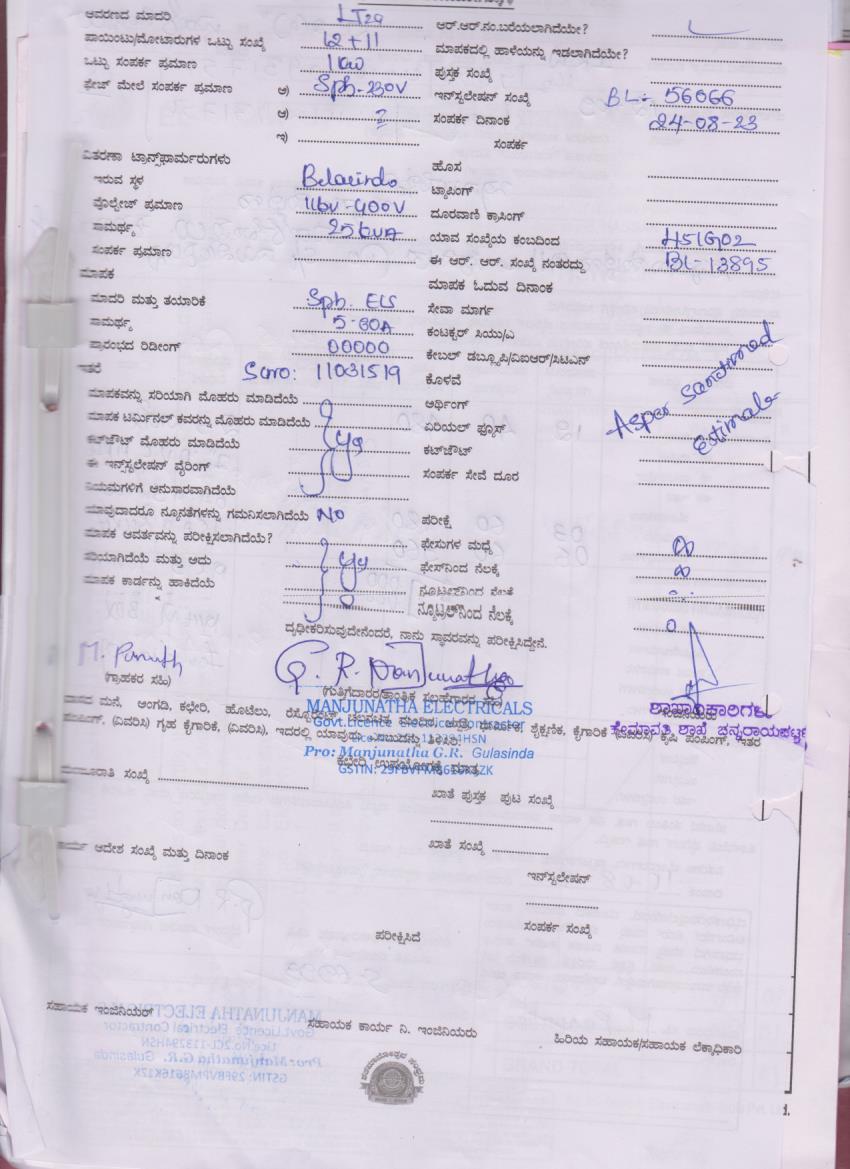 ಆವರಣದ ಮಾದರಿ LT2a ಆರ್.ಆರ್.ನಂ.ಬರೆಯಲಾಗಿದೆಯೇ?
ಪಾಯಿಂಟು/ಮೋಟಾರುಗಳ ಒಟ್ಟು ಸಂಖ್ಯೆ L2+11 ಮಾಪಕದಲ್ಲಿ ಹಾಳೆಯನ್ನು ಇಡಲಾಗಿದೆಯೇ?
ಒಟ್ಟು ಸಂಪರ್ಕ ಪ್ರಮಾಣ 1KW ಪುಸ್ತಕ ಸಂಖ್ಯೆ
ಫೇಜ್ ಮೇಲೆ ಸಂಪರ್ಕ ಪ್ರಮಾಣ ಅ) Sph-230V ಇನ್‌ಸ್ಟಲೇಷನ್ ಸಂಖ್ಯೆ BL:- 56066
ಆ) ಸಂಪರ್ಕ ದಿನಾಂಕ 24-08-23
ಇ) ಸಂಪರ್ಕ
ವಿತರಣಾ ಟ್ರಾನ್ಸ್‌ಫಾರ್ಮರುಗಳು ಹೊಸ
ಇರುವ ಸ್ಥಳ Belarindo ಟ್ಯಾಪಿಂಗ್
ವೊಲ್ಟೇಜ್ ಪ್ರಮಾಣ 11kv-400V ದೂರವಾಣಿ ಕ್ರಾಸಿಂಗ್
ಸಾಮರ್ಥ್ಯ 25kVA ಯಾವ ಸಂಖ್ಯೆಯ ಕಂಬದಿಂದ HS1G02
ಸಂಪರ್ಕ ಪ್ರಮಾಣ ಈ ಆರ್. ಆರ್. ಸಂಖ್ಯೆ ನಂತರದ್ದು BL-13895
ಮಾಪಕ ಮಾಪಕ ಓದುವ ದಿನಾಂಕ
ಮಾದರಿ ಮತ್ತು ತಯಾರಿಕೆ Sph. ELS ಸೇವಾ ಮಾರ್ಗ
ಸಾಮರ್ಥ್ಯ 5-30A ಕಂಟಕ್ಟರ್ ಸಿಯು/ಎ
ಪ್ರಾರಂಭದ ರಿಡೀಂಗ್ 00000 ಕೇಬಲ್ ಡಬ್ಲ್ಯೂಪಿ/ವಿಐಆರ್/ಸಿಟಿಎನ್
ಇತರೆ Scno: 11031519 ಕೊಳವೆ
ಮಾಪಕವನ್ನು ಸರಿಯಾಗಿ ಮೊಹರು ಮಾಡಿದೆಯೆ ಅರ್ಥಿಂಗ್ Asper Sanctioned
ಮಾಪಕ ಟರ್ಮಿನಲ್ ಕವರನ್ನು ಮೊಹರು ಮಾಡಿದೆಯೆ ಏರಿಯಲ್ ಫ್ಯೂಸ್ Estimate
ಕಟ್‌ಔಟ್ ಮೊಹರು ಮಾಡಿದೆಯೆ Yes ಕಟ್‌ಔಟ್
ಈ ಇನ್‌ಸ್ಟಲೇಷನ್ ವೈರಿಂಗ್ ಸಂಪರ್ಕ ಸೇವೆ ದೂರ
ನಿಯಮಗಳಿಗೆ ಅನುಸಾರವಾಗಿದೆಯೆ
ಯಾವುದಾದರೂ ನ್ಯೂನತೆಗಳನ್ನು ಗಮನಿಸಲಾಗಿದೆಯೆ No ಪರೀಕ್ಷೆ
ಮಾಪಕ ಆವರ್ತವನ್ನು ಪರೀಕ್ಷಿಸಲಾಗಿದೆಯೆ? ಫೇಸುಗಳ ಮಧ್ಯೆ ∞
ಸರಿಯಾಗಿದೆಯೆ ಮತ್ತು ಅದು Yes ಫೇಸ್‌ನಿಂದ ನೆಲಕ್ಕೆ ∞
ಮಾಪಕ ಕಾರ್ಡನ್ನು ಹಾಕಿದೆಯೆ
ನ್ಯೂಟ್ರಲ್‌ನಿಂದ ನೆಲಕ್ಕೆ 0
ದೃಢೀಕರಿಸುವುದೇನೆಂದರೆ, ನಾನು ಸ್ಥಾವರವನ್ನು ಪರೀಕ್ಷಿಸಿದ್ದೇನೆ.
G. R. Manjunatha
(ಗ್ರಾಹಕರ ಸಹಿ)
MANJUNATHA ELECTRICALS
Govt.Licence Electrical Contractor
Pro: Manjunatha G.R. Gulasinda
ಶಾಖಾಧಿಕಾರಿಗಳು
ಹೇಮಾವತಿ ಶಾಖೆ ಚನ್ನರಾಯಪಟ್ಟಣ
ಕಛೇರಿ ಉಪಯೋಗಕ್ಕೆ ಮಾತ್ರ
ಸಂಖ್ಯೆ
ಖಾತೆ ಪುಸ್ತಕ ಪುಟ ಸಂಖ್ಯೆ
ಕಾರ್ಯ ಆದೇಶ ಸಂಖ್ಯೆ ಮತ್ತು ದಿನಾಂಕ ಖಾತೆ ಸಂಖ್ಯೆ
ಇನ್‌ಸ್ಟಲೇಷನ್
ಸಂಪರ್ಕ ಸಂಖ್ಯೆ
ಪರೀಕ್ಷಿಸಿದೆ
ಸಹಾಯಕ ಇಂಜಿನಿಯರ್ ಸಹಾಯಕ ಕಾರ್ಯ ನಿ. ಇಂಜಿನಿಯರು ಹಿರಿಯ ಸಹಾಯಕ/ಸಹಾಯಕ ಲೆಕ್ಕಾಧಿಕಾರಿ